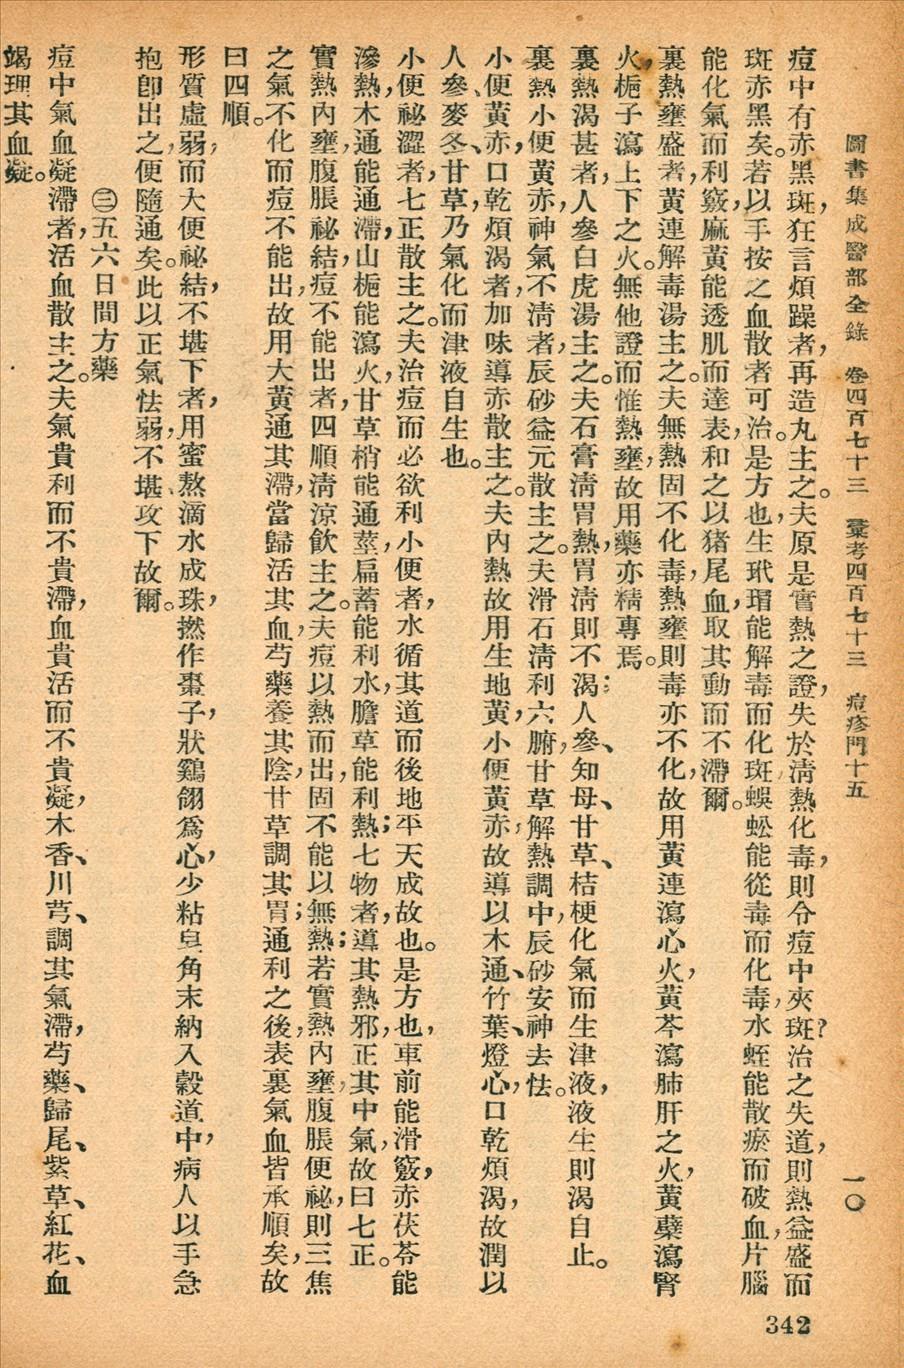 圖書集成醫部全錄　卷四百七十三　彙考四百七十三　痘疹門十五　一〇
痘中有赤黑斑，狂言煩躁者，再造丸主之。夫原是實熱之證，失於淸熱化毒，則令痘中夾斑？治之失道，則熱益盛而
斑赤黑矣。若以手按之血散者可治。是方也，生玳瑁能解毒而化斑，蜈蚣能從毒而化毒，水蛭能散瘀而破血，片腦
能化氣而利竅，麻黃能透肌而達表，和之以猪尾血，取其動而不滯爾。
裏熱壅盛者，黃連解毒湯主之。夫無熱固不化毒，熱壅則毒亦不化，故用黃連瀉心火，黃芩瀉肺肝之火，黃蘗瀉腎
火，梔子瀉上下之火。無他證而惟熱壅，故用藥亦精專焉。
裏熱渴甚者，人參白虎湯主之。夫石膏淸胃熱，胃淸則不渴；人參、知母、甘草、桔梗化氣而生津液，液生則渴自止。
裏熱小便黃赤，神氣不淸者，辰砂益元散主之。夫滑石淸利六腑，甘草解熱調中，辰砂安神去怯。
小便黃赤，口乾煩渴者，加味導赤散主之。夫內熱故用生地黃，小便黃赤，故導以木通、竹葉、燈心，口乾煩渴，故潤以
人參、麥冬、甘草，乃氣化而津液自生也。
小便祕澀者，七正散主之。夫治痘而必欲利小便者，水循其道而後地平天成故也。是方也，車前能滑竅，赤茯苓能
滲熱，木通能通滯，山梔能瀉火，甘草梢能通莖，扁蓄能利水，膽草能利熱；七物者，導其熱邪，正其中氣，故曰七正。
實熱內壅，腹脹祕結，痘不能出者，四順淸涼飮主之。夫痘以熱而出，固不能以無熱；若實熱內壅，腹脹便祕，則三焦
之氣不化而痘不能出，故用大黃通其滯，當歸活其血，芍藥養其陰，甘草調其胃；通利之後，表裏氣血皆承順矣，故
曰四順。
形質虛弱，而大便祕結，不堪下者，用蜜熬滴水成珠，撚作棗子，狀鷄翎爲心，少粘皂角末納入穀道中，病人以手急
抱卽出之，便隨通矣。此以正氣怯弱，不堪攻下故爾。
㊂五六日間方藥
痘中氣血凝滯者，活血散主之。夫氣貴利而不貴滯，血貴活而不貴凝，木香、川芎、調其氣滯，芍藥、歸尾、紫草、紅花、血
竭理其血凝。
342